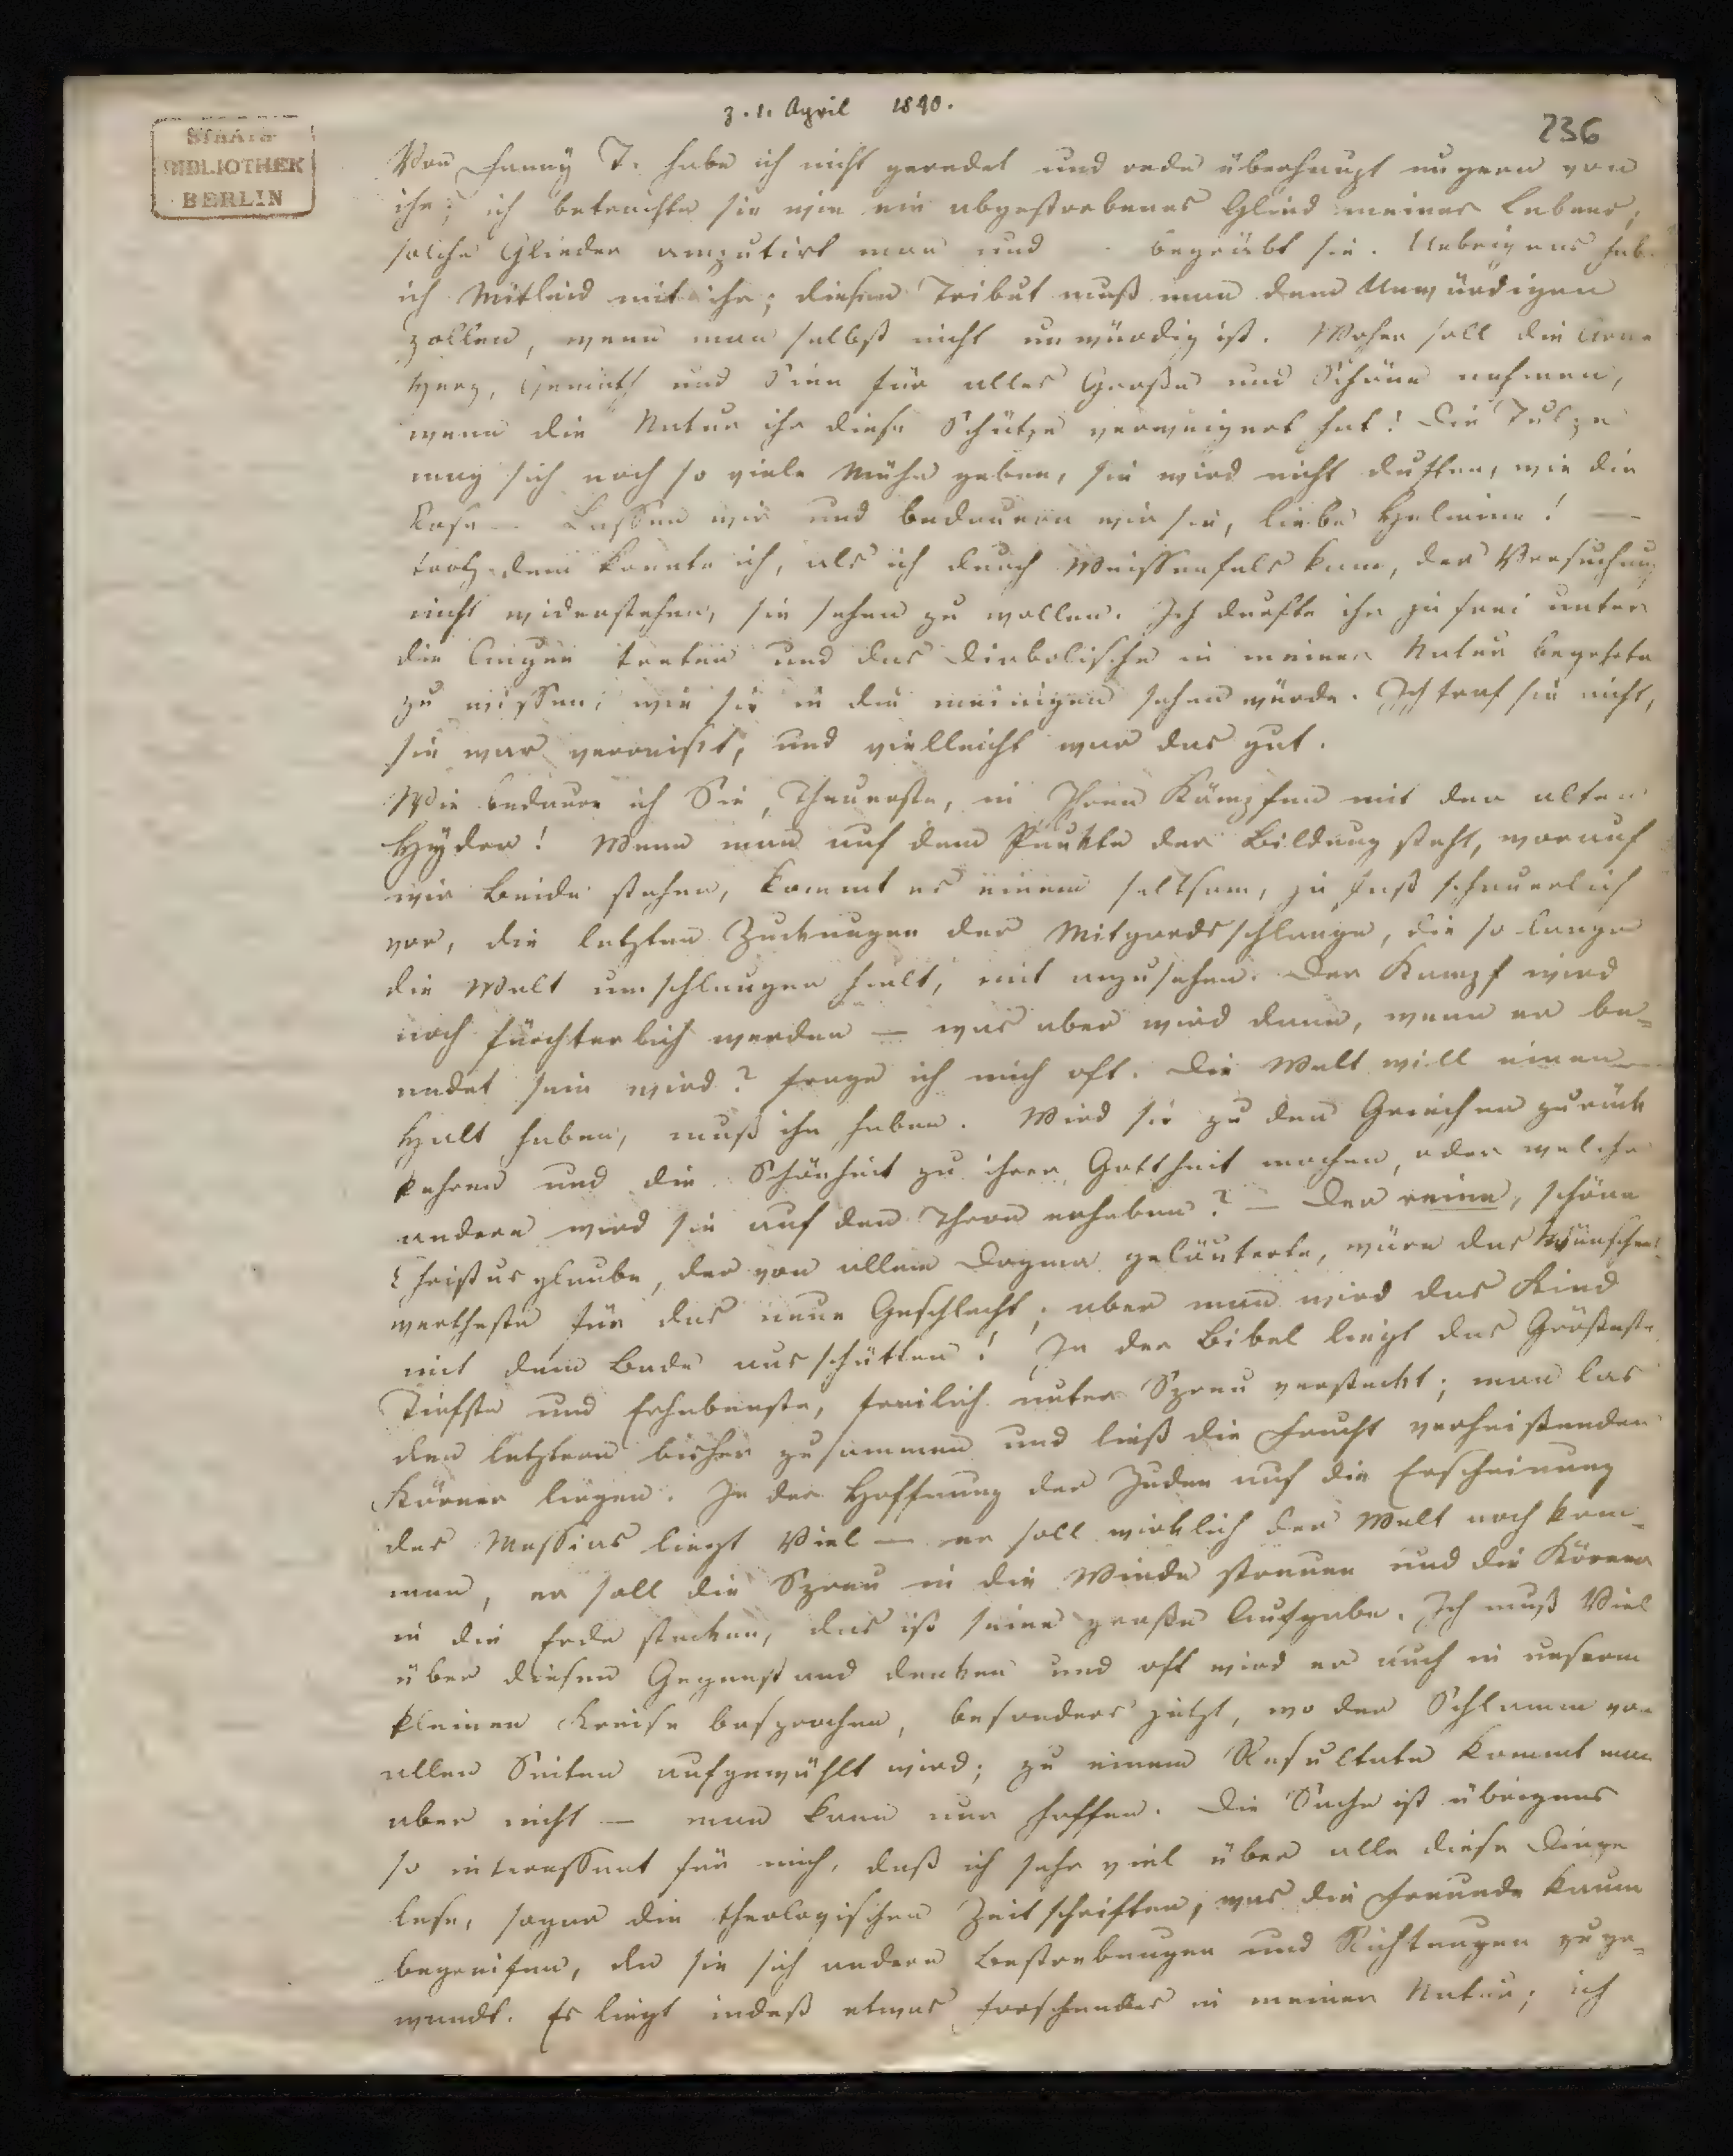 z. 1. April 1840.
236
STAATS
BIBLIOTHEK
BERLIN
Von Fanny T. habe ich nicht geredet und rede überhaupt ungern von
ihr; ich betrachte sie wie ein abgestorbenes Glied meines Lebens;
solche Glieder amputirt man und begräbt sie. Uebrigens hab
ich Mitleid mit ihr; diesen Tribut muß man dem Unwürdigen
zollen, wenn man selbst nicht unwürdig ist. Woher soll die Arme
Herz, Gemüth und Sinn für alles Große und Schöne nehmen,
wenn die Natur ihr diese Schätze verweigert hat! Die Tulpe
mag sich noch so viele Mühe geben, sie wird nicht duften, wie die
Rose – Lassen wir und bedauern wir sie, liebe Helmine! —
trotz dem konnte ich, als ich durch Weissenfels kam, der Versuchung
nicht widerstehen, sie sehen zu wollen. Ich durfte ihr ja frei unter
die Augen treten und das Diabolische in meiner Natur begehrte
zu wissen, wie sie in die meinigen sehen würde. Ich traf sie nicht,
sie war verreist, und vielleicht war das gut.
Wie bedaure ich Sie, Theuerste, in Ihren Kämpfen mit der alten
Hyder! Wenn man auf dem Punkte der Bildung steht, worauf
wir Beide stehen, kommt es einem seltsam, ja fast schauerlich
vor, die letzten Zuckungen der Mitgardsschlange, die so lange
die Welt umschlungen hielt, mit anzusehen. Der Kampf wird
noch fürchterlich werden — was aber wird dann, wenn er be-
endet sein wird? frage ich mich oft. Die Welt will einen
Halt haben, muß ihn haben. Wird sie zu den Griechen zurück
kehren und die Schönheit zu ihrer Gottheit machen, oder welche
andere wird sie auf den Thron erheben? — Der reine, schöne
Christusglaube, der von allem Dogma geläuterte, wäre das Wünschens-
wertheste für das neue Geschlecht; aber man wird das Kind
mit dem Bade ausschütten! In der Bibel liegt das Größeste
Tiefste und Erhabenste, freilich unter Spreu versteckt; man las
den letztern bisher zusammen und ließ die Frucht verheißenden
Körner liegen. In der Hoffnung der Juden auf die Erscheinung
des Messias liegt Viel — er soll wirklich der Welt noch kom-
men, er soll die Spreu in die Winde streuen und die Körner
in die Erde stecken, das ist seine große Aufgabe. Ich muß Viel
über diesen Gegenstand denken und oft wird er auch in unserm
kleinen Kreise besprochen, besonders jetzt, wo der Schlamm von
allen Seiten aufgewühlt wird; zu einem Resultate kommt man
aber nicht — man kann nur hoffen. Die Sache ist übrigens
so interessant für mich, daß ich sehr viel über alle diese Dinge
lese, sogar die theologischen Zeitschriften, was die Freunde kaum
begreifen, da sie sich andern Bestrebungen und Richtungen zuge-
wandt. Es liegt indeß etwas forschendes in meiner Natur; ich